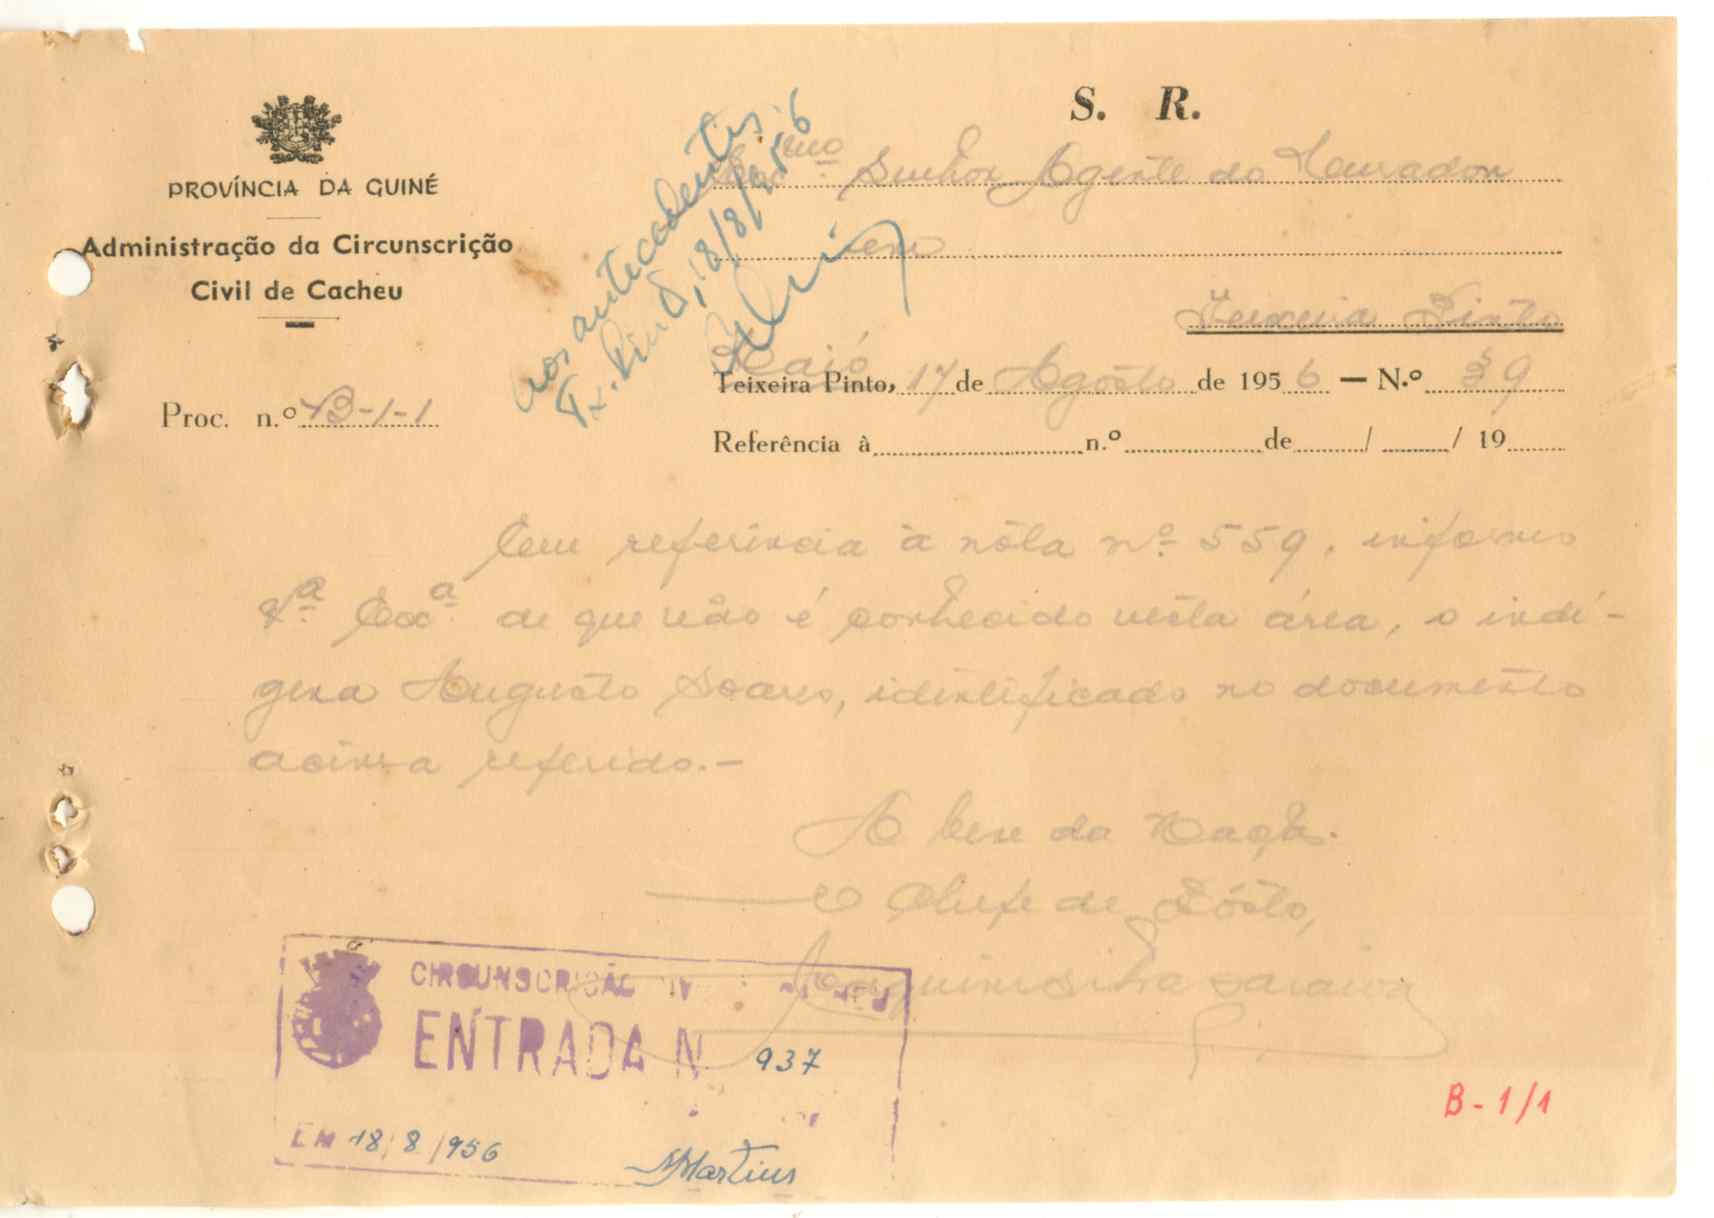 S. R.
PROVÍNCIA DA GUINÉ
Administração da Circunscrição
Civil de Cacheu
Proc. n.º B-1-1
Exmo Senhor Agente do
em
Teixeira Pinto
Caió
Teixeira Pinto, 17 de Agôsto de 1956 — N.º 39
Referência à n.º de / / 19
Aos antecedentes.
Tx. Pinto, 18/8/956
Em referência à nóta nº 559, informo
Vª Exª de que não é conhecido nésta área, o indí-
gena Augusto Soares, identificado no documento
acima referido.-
A Bem da Nação.
O Chefe de Pôsto,
CIRCUNSCRIÇÃO
ENTRADA N 937
EM 18/8/956
Martins
B-1/1